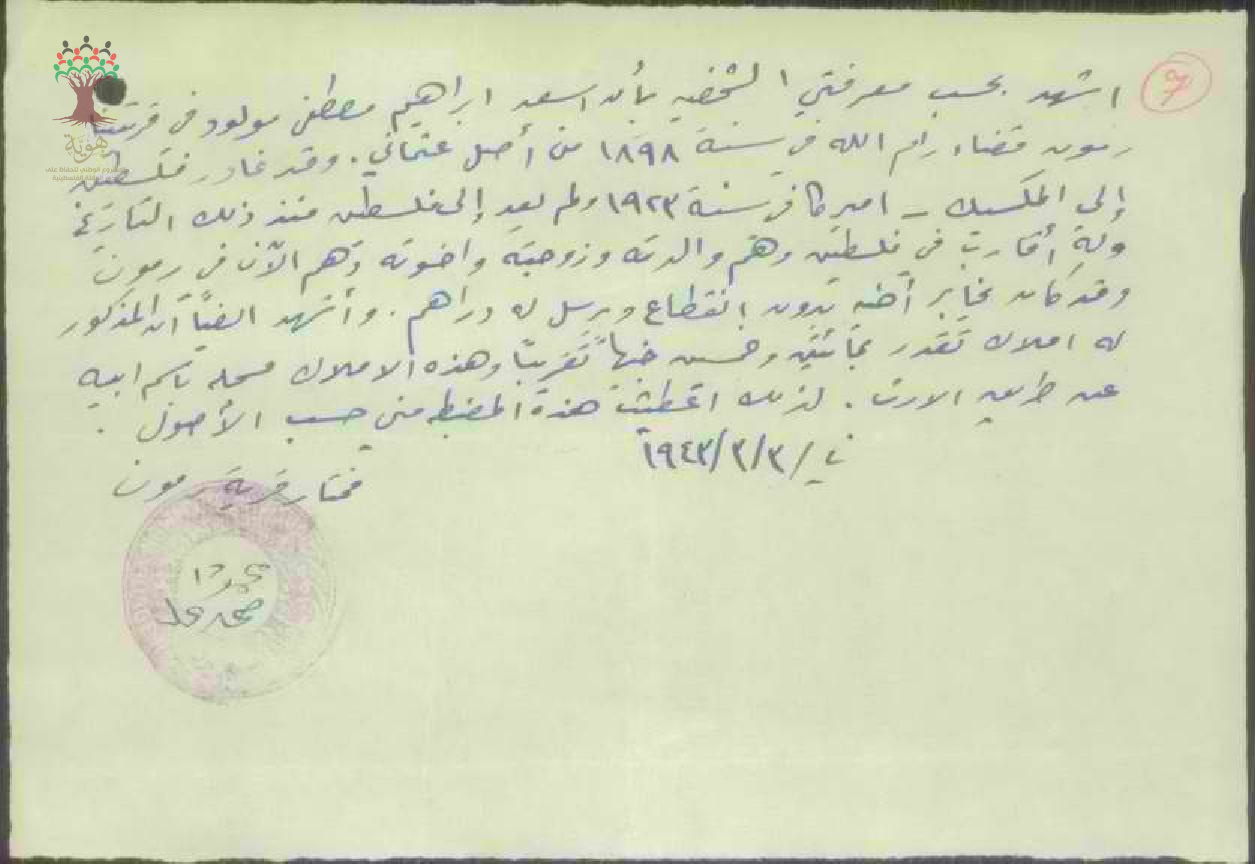 7
اشهد بحسب معرفتي الشخصيه بأن اسعد ابراهيم مصطفى مولود في قريتنا
رمون قضاء رام الله في سنة ١٨٩٨ من أصل عثماني. وقد غادر فلسطين
إلى المكسيك - اميركا في سنة ١٩٢٣ ولم يعد إلى فلسطين منذ ذلك التاريخ
وله أقارب في فلسطين وهم والدته وزوجته واخوته وهم الآن في رمون
وقد كان يخابر أخيه بدون انقطاع ويرسل له دراهم. وأشهد ايضاً أن المذكور
له املاك تقدر بمائتين وخمسين جنيهاً تقريباً وهذه الاملاك مسجله باسم ابيه
عن طريق الارث. لذلك اعطيت هذه المضبطه مني حسب الأصول.
في ٣/٣/١٩٤٣
مختار قرية رمون
هوية